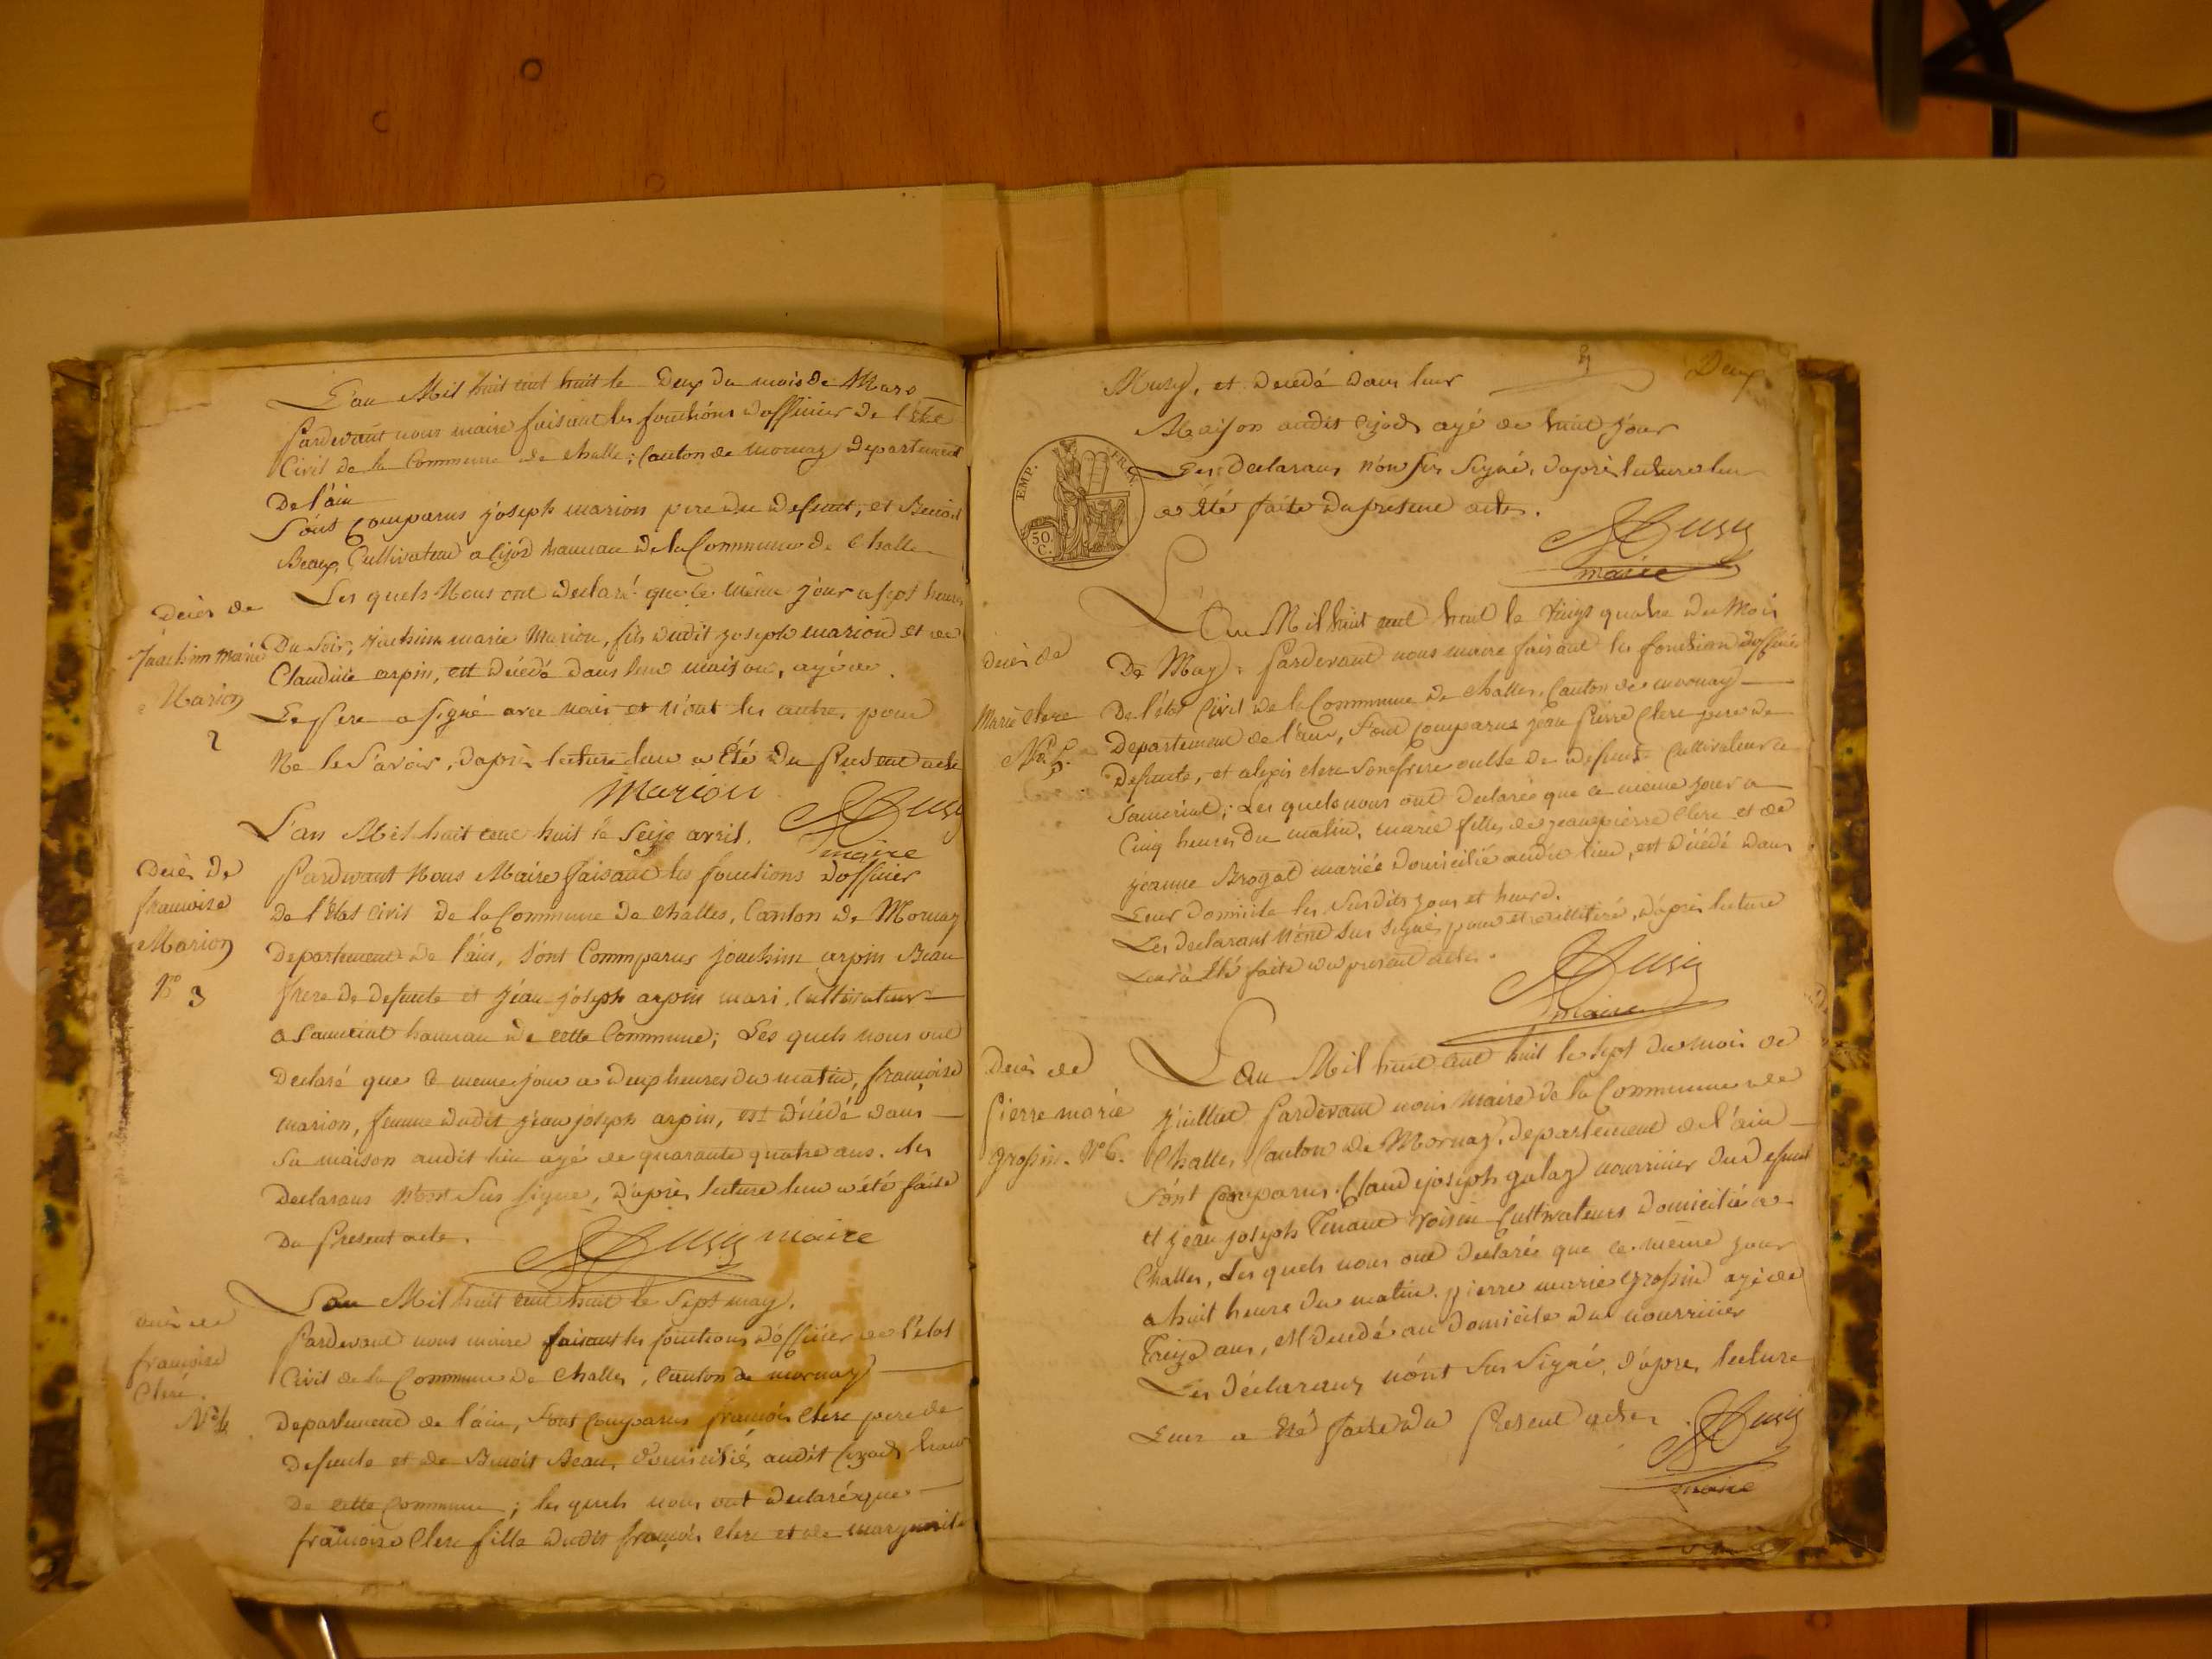 L'an Mil huit cent huit le Deux du mois de Mars
Pardevant nous maire faisant les fonctions d'officier de l'Etat
Civil de la Commune de Challe ; Canton de mornay Departement
De l'ain
Sont Comparus joseph marion pere du defunt, et Benoit
Beaux, Cultivateur a Cizod hameau de la Commune de Challe
Les quels Nous ont declaré que le même jour a sept heures
Decès de
Joachim Marie
Marion
2
Du Soir, joachim marie Marion, fils dudit joseph marion et de
Claudine arpin, est décédé dans leur maison, agé de
Le pere a signé avec nous et n'ont les autre, pour
Ne le Savoir, dapres lecture leur a Eté Du Present acte
Marion
Musy
maire
L'an Mil huit cent huit le Seize avril.
Decès De
francoise
Marion
No 3
Pardevant Nous Maire faisant les fonctions d'officier
De l'Etat Civil De la Commune De Challes, Canton De Mornay
Departement De l'ain, Sont Commparus joachim arpin Beau
frere De Defunte et jean joseph arpin mari, Cultivateur
a Samериat hameau De cette Commune ; Les quels nous ont
Declaré que le meme jour a Deux heures Du matin, françoise
marion, femme dudit jean joseph arpin, est décédé dans
Sa maison audit lieu agé de quarante quatre ans. Les
Declarans N'ont Sus signé, D'après lecture leur a été faite
Du Present acte.
Musy maire
L'an Mil huit cent huit le Sept may.
decès de
françoise
Clerc.
No 4
Pardevant nous maire faisant les fonctions d'officier de l'état
Civil de la Commune De Challes, Canton de mornay
Departement de l'ain, Sont Comparus françois Clerc pere de
Defunte et de Benoit Beau, domicilié audit Cizod ham
De cette Commune ; les quels nous ont declaré que
françoise Clerc fille dudit françois Clerc et de marguerite
Deux
Musy, et decedé dans leur
Maison audit Cizod agé de huit jour
Les Declarans n'on sus Signé, d'après lecture leur
a Eté faite du présent acte.
EMP. FRA.
50.
C.
Musy
maire
L'an Mil huit cent huit le Vingt quatre du Mois
decès de
Marie Clerc
No 5.
De May. Pardevant nous maire faisant les fonction d'officier
De l'état Civil de la Commune De Challes, Canton de mornay
Departement de l'ain, Sont Comparus jean Pierre Clerc pere de
Defunte, et alexis clerc Son frere oncle De Defunt Cultivateur a
Sameriat ; Les quels nous ont declarés que ce même jour a
Cinq heures Du matin, marie fille de jean pierre Clerc et de
jeanne Brogat mariés domicilié audit lieu, est décédé dans
Leur domicile les Susdits jour et heure.
Les declarant n'ont sus signé, pour etre illitiré, d'après lecture
Leur a Eté faite du présent acte.
Musy
maire
Decès de
Pierre marie
grossin. No 6.
L'an Mil huit cent huit le sept du mois de
juillet Pardevant nous Maire de la Commune de
Challe, Canton de Mornay, departement de l'ain
Sont Comparus. Claude joseph galay nourricier du Defunt
et jean joseph Tenant voisin Cultivateurs domicilié a
Challes, Les quels nous ont declarés que ce même jour
a huit heure du matin. pierre marie grossin agé de
treize ans, est decedé au domicile du nourricier
Les déclarans n'ont Sus Signé, d'après lecture
Leur a Eté faite du Présent acte.
Musy
maire